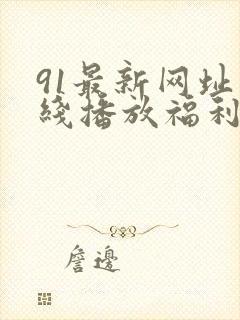 91最新网址
綫播放福利
詹邊